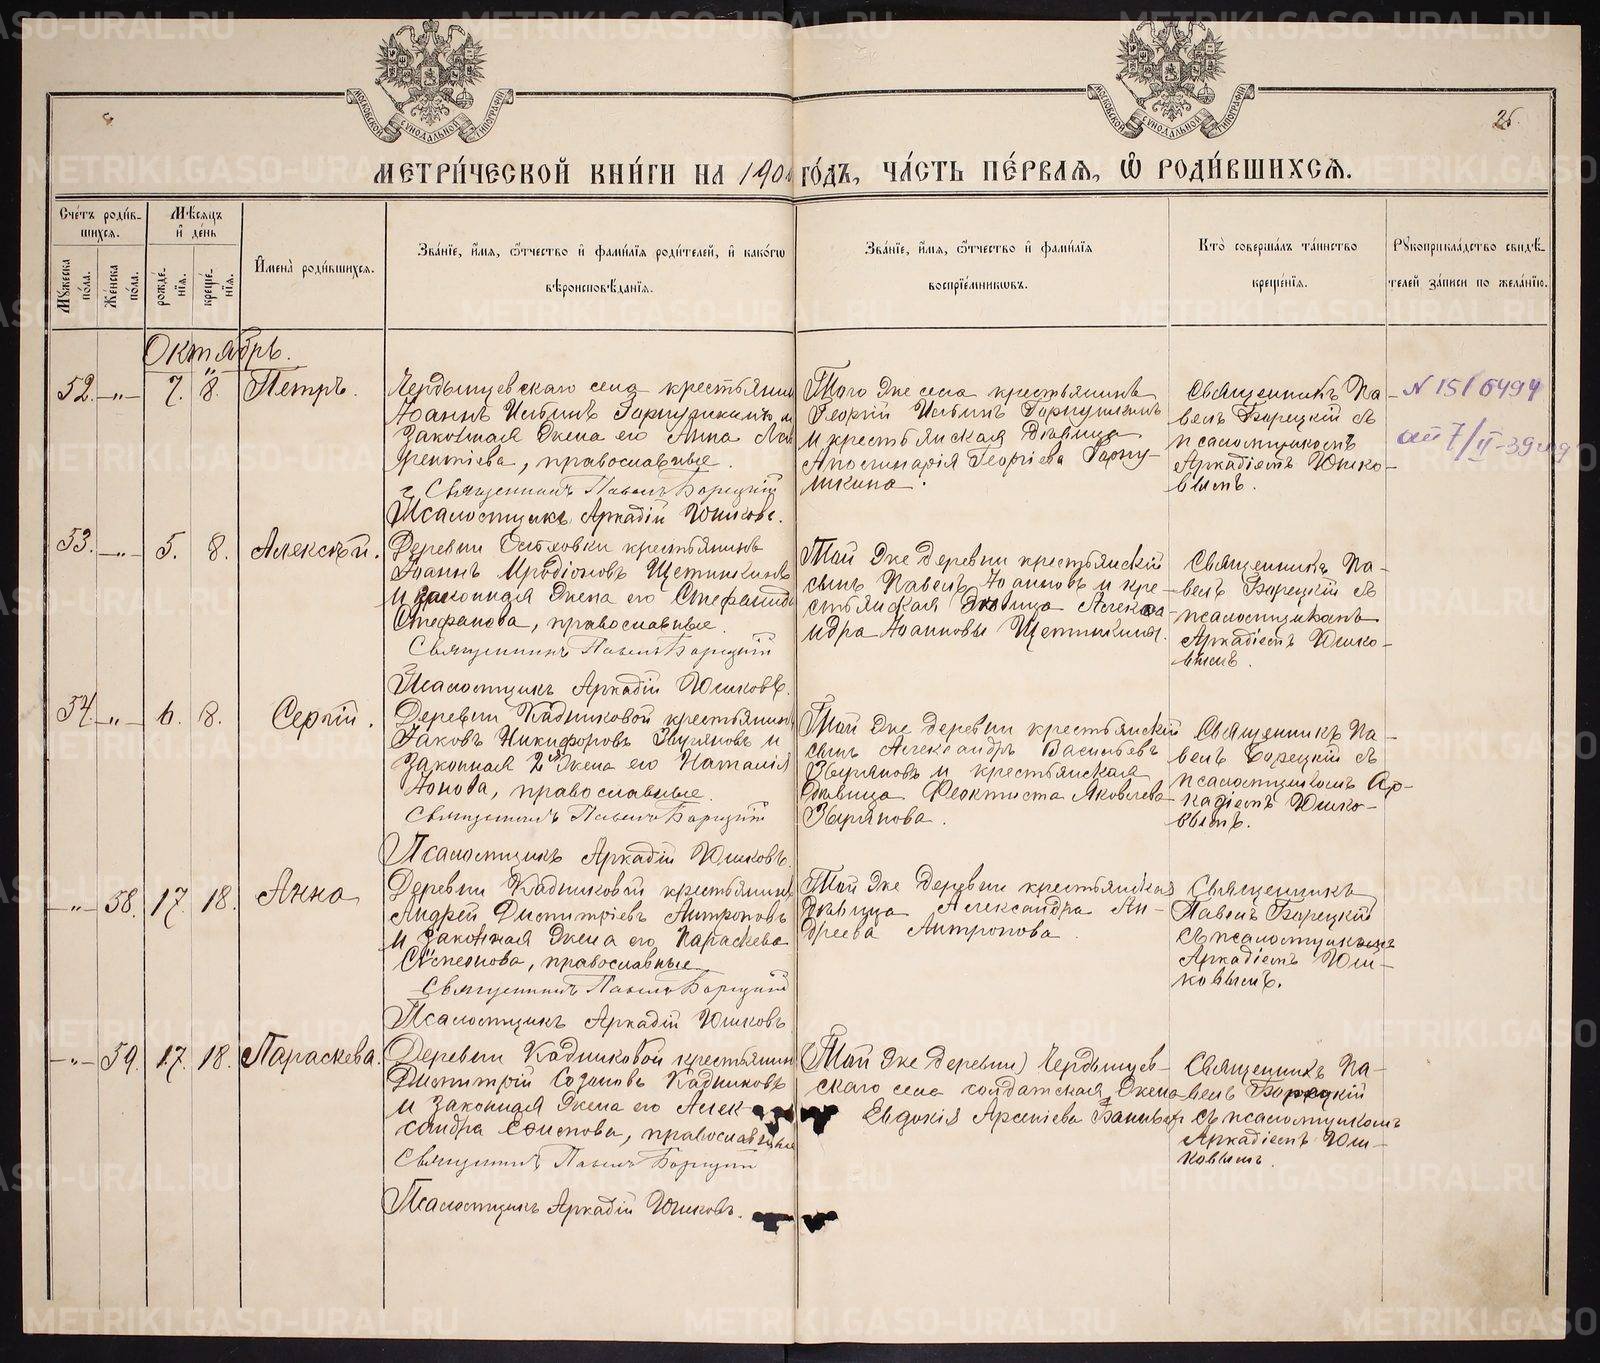 25.
МЕТРИ́ЧЕСКОЙ КНИ́ГИ НА 190 ГО́ДЪ, ЧА́СТЬ ПЕ́РВАѦ, Ѡ РОДИ́ВШИХСѦ.
Сче́тъ роди́в-
шихсѧ.
Мꙋ́жеска по́ла.
Же́нска по́ла.
Мѣ́сѧцъ и де́нь
рожде́-
нїѧ.
креще́-
нїѧ.
И҆мена̀ роди́вшихсѧ.
Зва́нїе, и҆́мѧ, ѻ҆́тчество и҆ фами́лїѧ роди́телей, и҆ како́гѡ
вѣроисповѣ́данїѧ.
Зва́нїе, и҆́мѧ, ѻ҆́тчество и҆ фами́лїѧ
воспрїе́мникѡвъ.
Кто̀ соверша́лъ та́инство
креще́нїѧ.
Рꙋкоприкла́дство свидѣ́-
телей за́писи по жела́нїю.
Октябрь.
52. „ 7. 8. Петръ.
Чердынцевскаго села крестьянин
Іоаннъ Ильинъ и
законная жена его Анна
православные.
Священникъ Павелъ Борецкій
Псаломщикъ Аркадій Юшковъ.
Того же села крестьянинъ
Георгій Ильинъ
и крестьянская дѣвица
Аполинарія Георгіева
Священникъ Па-
велъ Борецкій съ
псаломщикомъ
Аркадіемъ Юшко-
вымъ.
N 151 6494
7/II-39
53. „ 5. 8. Алексѣй.
Деревни крестьянинъ
Іоаннъ Иродіоновъ Щетинкинъ
и законная жена его Стефанида
Стефанова, православные.
Священникъ Павелъ Борецкій
Псаломщикъ Аркадій Юшковъ.
Той же деревни крестьянскій
сынъ Павелъ Іоанновъ и кре-
стьянская дѣвица Алекса-
ндра Іоанновы Щетинкины.
Священникъ Па-
велъ Борецкій съ
псаломщикомъ
Аркадіемъ Юшко-
вымъ.
54. „ 6. 8. Сергій.
Деревни Кадниковой крестьянин
Іаковъ Никифоровъ Зыряновъ и
законная 2я жена его Наталія
Іонова, православные.
Священникъ Павелъ Борецкій
Псаломщикъ Аркадій Юшковъ.
Той же деревни крестьянскій
сынъ Александръ Васильевъ
Зыряновъ и крестьянская
дѣвица Феоктиста Яковлева
Зырянова.
Священникъ Па-
велъ Борецкій съ
псаломщикомъ Ар-
кадіемъ Юшко-
вымъ.
„ 58. 17. 18. Анна
Деревни Кадниковой крестьянин
Андрей Димитріевъ Антроповъ
и законная жена его Параскева
православные
Священникъ Павелъ Борецкій
Псаломщикъ Аркадій Юшковъ
Той же деревни крестьянская
дѣвица Александра Ан-
дреева Антропова
Священникъ
Павелъ Борецкій
съ псаломщикомъ
Аркадіемъ Юш-
ковымъ.
„ 59. 17. 18. Параскева.
Деревни Кадниковой крестьянин
Димитрій Созоновъ Кадниковъ
и законная жена его Алек-
сандра православные
Священникъ Павелъ Борецкій
Псаломщикъ Аркадій Юшковъ.
(Той же деревни) Чердынцев-
скаго села солдатская жена
Евдокія Арсеніева
Священникъ Па-
велъ Борецкій
съ псаломщикомъ
Аркадіемъ Юш-
ковымъ.
METRIKI.GASO-URAL.RU